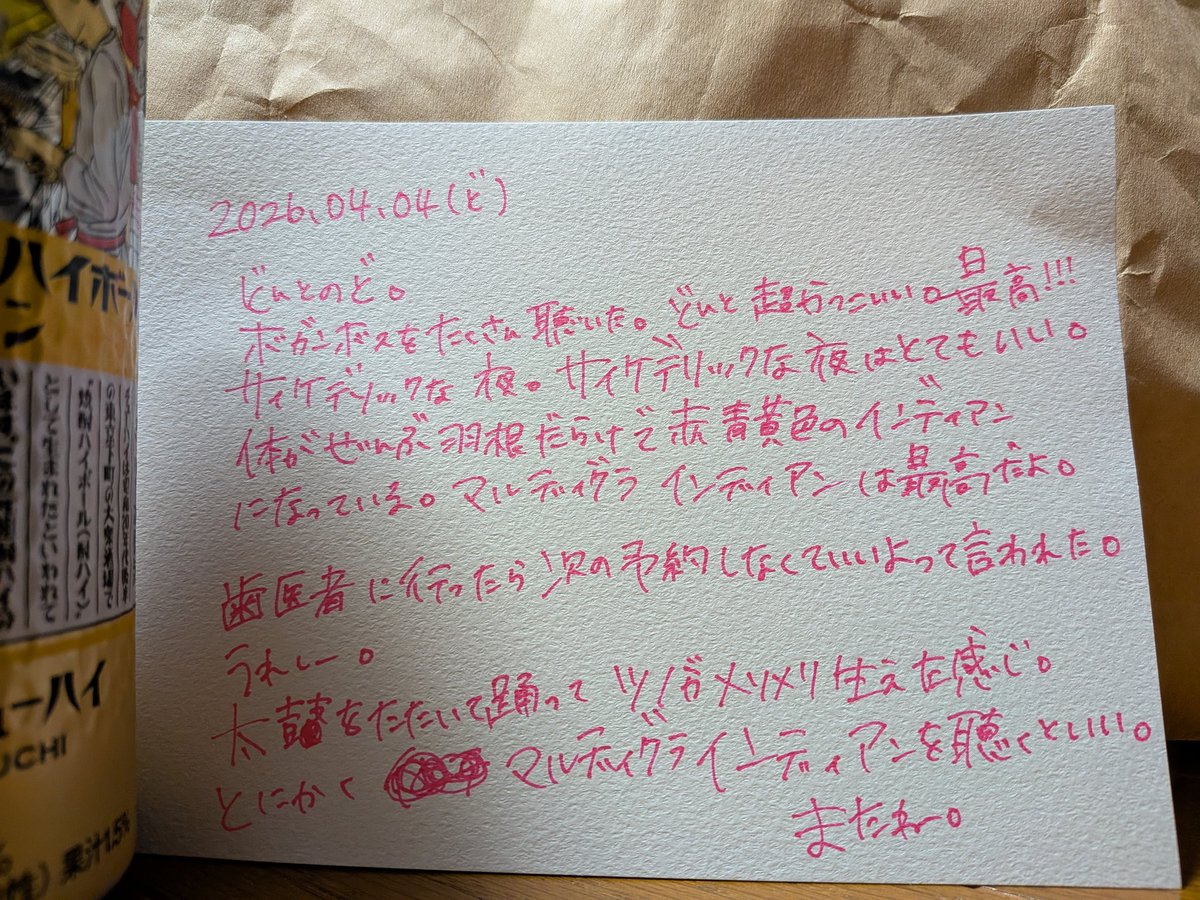 2026.04.04(ど)
どんとのど。
ボガンボスをたくさん聴いた。どんと超かっこいい。最高!!!
サイケデリックな夜。サイケデリックな夜はとてもいい。
体がぜんぶ羽根だらけで赤青黄色のインディアン
になっている。マルディグラインディアンは最高だよ。
歯医者に行ったら次の予約しなくていいよって言われた。
うれしー。
太鼓をたたいて踊ってツノがメリメリ生えた感じ。
とにかく マルディグラインディアンを聴くといい。
またねー。
ハイボー
ン
の東京下町の大衆酒場で
"焼酎ハイボール(酎ハイ)"
として生まれたといわれて
ューハイ
UCHI
性)果汁1.5%